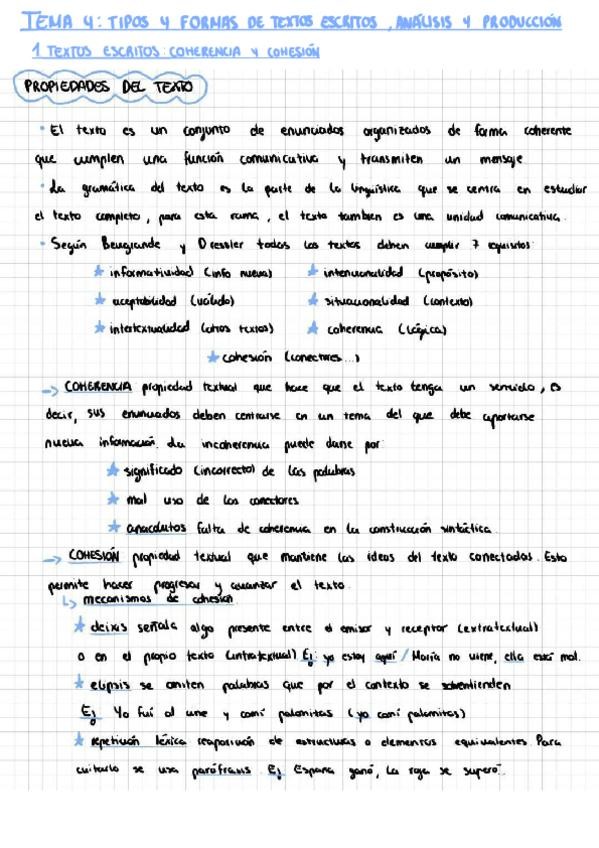 TEMA 4: TIPOS Y FORMAS DE TEXTOS ESCRITOS, ANÁLISIS Y PRODUCCIÓN
1 TEXTOS ESCRITOS: COHERENCIA Y COHESIÓN
PROPIEDADES DEL TEXTO
• El texto es un conjunto de enunciados organizados de forma coherente
que cumplen una función comunicativa y transmiten un mensaje
• La gramática del texto es la parte de la lingüística que se centra en estudiar
el texto completo, para esta rama, el texto tambien es una unidad comunicativa.
• Según Beugrande y Dressler todos los textos deben cumplir 7 requisitos:
★ informatividad (info nueva) ★ intencionalidad (propósito)
★ aceptabilidad (válido) ★ situacionalidad (contexto)
★ intertextualidad (otros textos) ★ coherencia (lógica)
★ cohesión (conectores...)
→ COHERENCIA propiedad textual que hace que el texto tenga un sentido, es
decir, sus enunciados deben centrarse en un tema del que debe aportarse
nueva información. La incoherencia puede darse por:
★ significado (incorrecto) de las palabras
★ mal uso de los conectores
★ anacolutos falta de coherencia en la construcción sintáctica.
→ COHESIÓN propiedad textual que mantiene las ideas del texto conectadas. Esto
permite hacer progresar y avanzar el texto.
↳ mecanismos de cohesión
★ deixis señala algo presente entre el emisor y receptor (extratextual)
o en el propio texto (intratextual) Ej: yo estoy aquí / María no viene, ella está mal.
★ elipsis se omiten palabras que por el contexto se sobreentienden
Ej Yo fui al cine y comí palomitas (yo comí palomitas)
★ repetición léxica reaparición de estructuras o elementos equivalentes. Para
evitarlo se usa paráfrasis. Ej España ganó, La roja se superó.